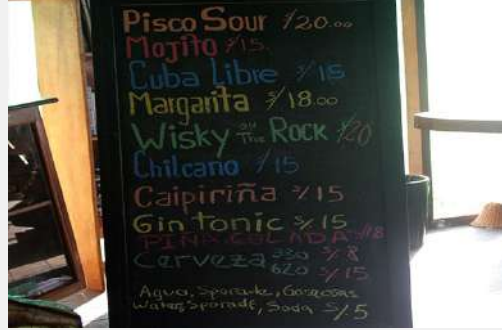 Pisco Sour S/20.00
Mojito S/15
Cuba Libre S/15
Margarita S/18.00
Wisky on The Rock S/20
Chilcano S/15
Caipiriña S/15
Gin tonic S/15
PIÑA COLADA S/18
Cerveza 330 S/8
620 S/15
Agua, Sporade, Gaseosas
Water, Sporade, Soda S/5